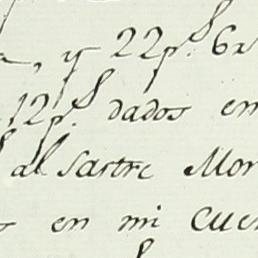 , y 22 p.s 6 r
12 p.s dados en
al Sastre Mor
en mi cuen